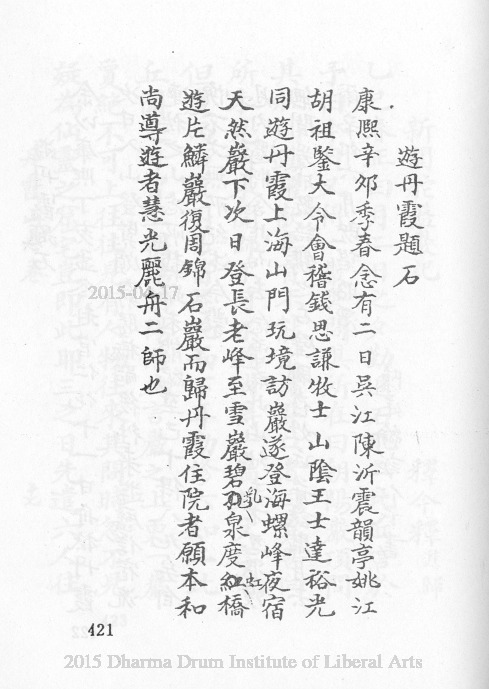 遊丹霞題石
康熙辛夘季春念有二日吳江陳沂震韻亭姚江
胡祖鑒大令會稽錢思謙牧士山陰王士達裕光
同遊丹霞上海山門玩境訪巖遂登海螺峰夜宿
天然巖下次日登長老峰至雪巖碧乳泉度虹橋
遊片鱗巖復周錦石巖而歸丹霞住院者願本和
尚導遊者慧光麗舟二師也
2015-04-17
421
2015 Dharma Drum Institute of Liberal Arts